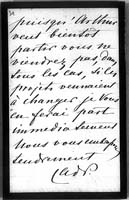 puisqu'Arthur
veut bientôt
partir vous ne
viendrez pas, dans
tous les cas, si les
projets venaient
à changer je vous
en ferai part
immédiatement
Nous vous embrassons
tendrement